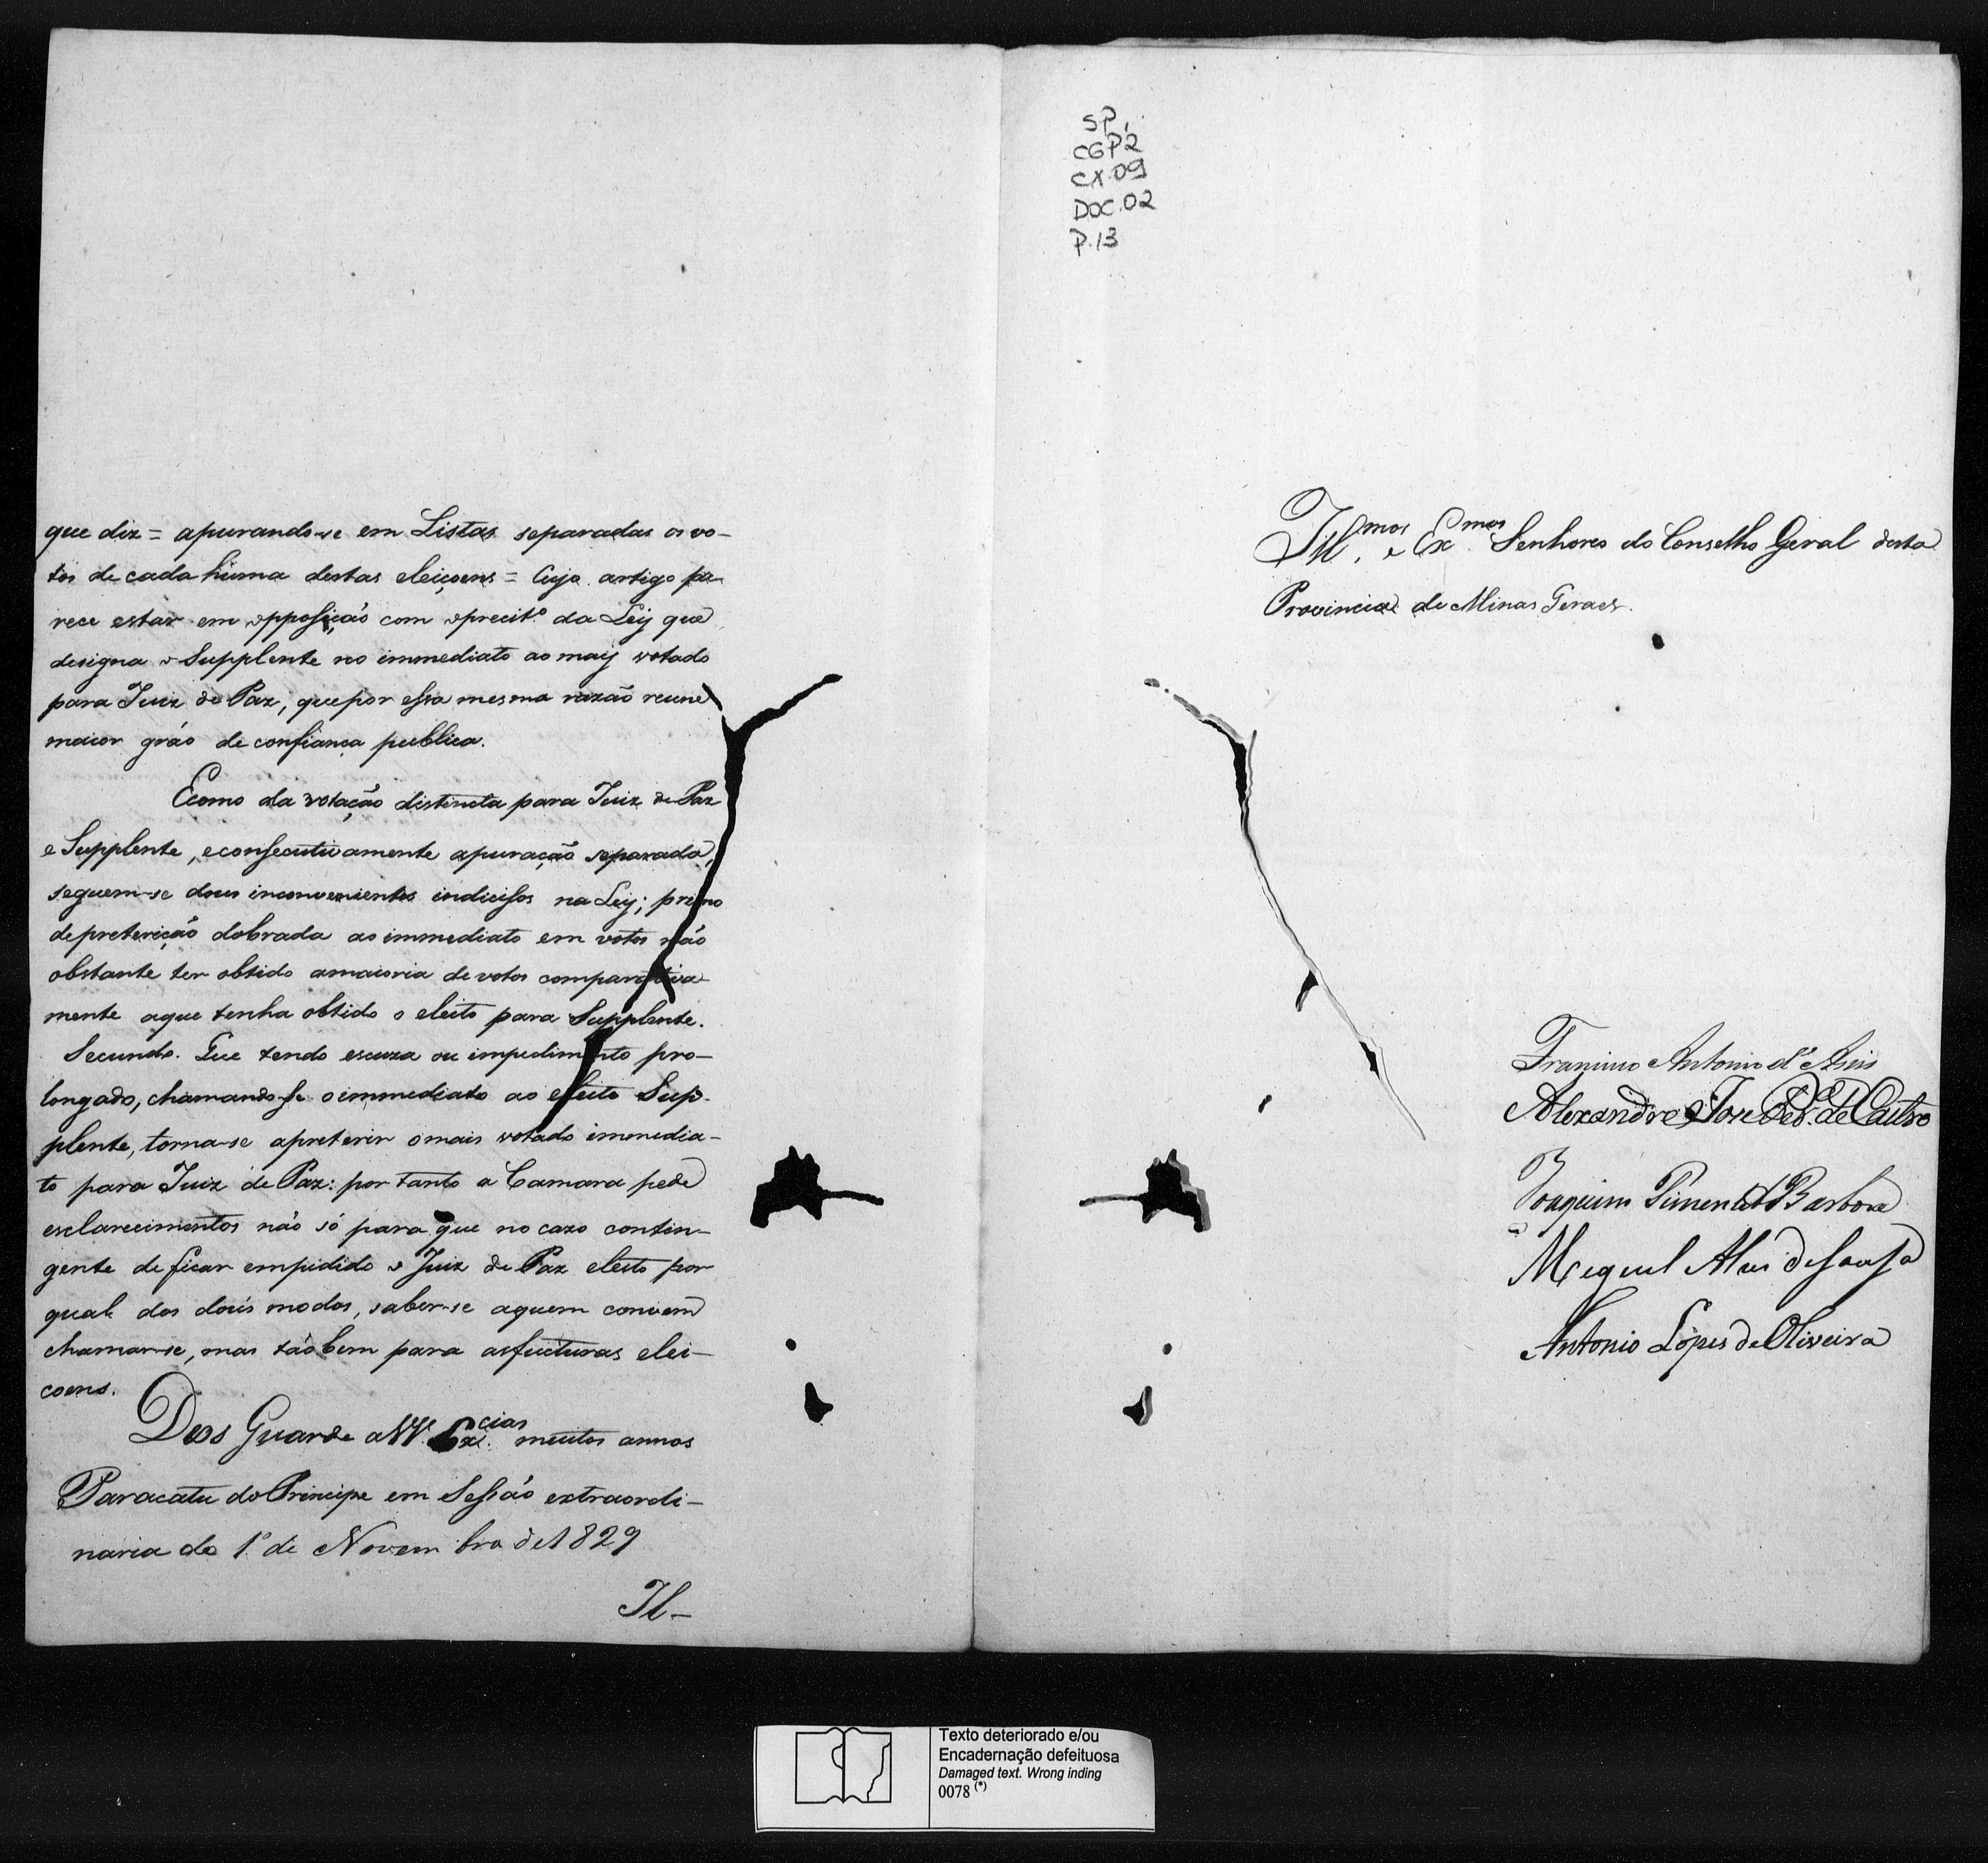 que diz = apurando-se em Listas separadas os vo-
tos de cada huma destas eleiçoens = Cujo artigo pa
rece estar em opposição com oprecit.º da Ley que
designa o Supplente no immediato ao mais votado
para Juiz de Paz, que por essa mesma razão reune
maior gráo de confiança publica.
Ecomo da votação distincta para Juiz de Paz
e Supplente, econsecutivamente apuração separada,
seguem-se dous inconvenientes indicisos na Ley; primo
depreterição dobrada ao immediato em votos não
obstante ter obtido amaioria de votos comparativa
mente aque tenha obtido o eleito para Supplente.
Secundo. Que tendo escuza ou impedimento pro-
longado, chamando-se oimmediato ao eleito Sup-
plente, torna-se apreterir omais votado immedia-
to para Juiz de Paz: por tanto a Camara pede
esclarecimentos não só para que no cazo contin-
gente de ficar empidido o Juiz de Paz eleito por
qual dos dous modos, saber-se aquem convem
chamar-se, mas tãobem para asfucturas elei-
coens.
Deos Guarde a VV. Ex.cias muitos annos
Paracatu do Principe em Sessão extraordi-
naria de 1.º de Novembro de 1829
Il-
SP,
CGP2
CX.09
DOC.02
P.13
Ill.mos e Ex.mos Senhores do Conselho Geral desta
Provincia de Minas Geraes.
Antonio d'Assis
Alexandre Joze de Castro
Joaquim Pimentel Barboza
Miguel Alves deSousa
Antonio Lopes de Oliveira
Texto deteriorado e/ou
Encadernação defeituosa
Damaged text. Wrong inding
0078 (*)